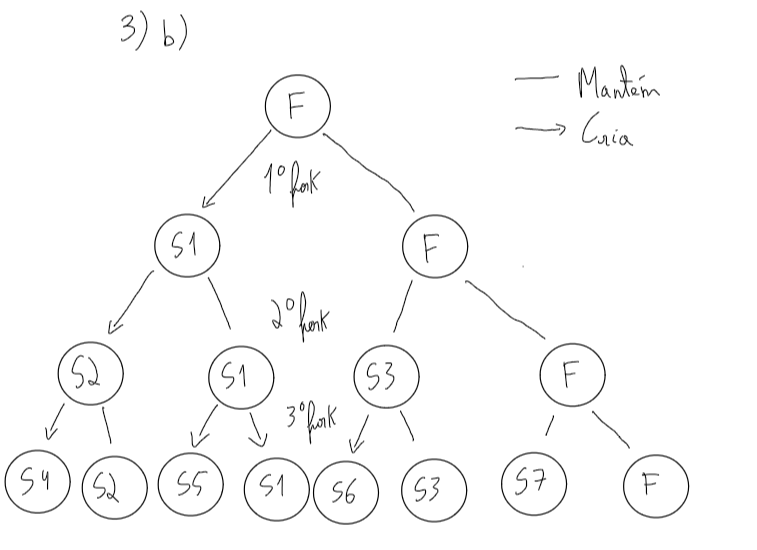 3) b)
F
Mantém
Cria
1º fork
S1 F
2º fork
S2 S1 S3 F
3º fork
S4 S2 S5 S1 S6 S3 S7 F